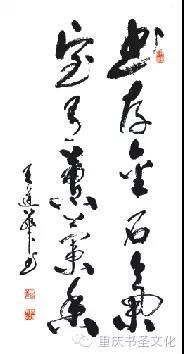 书存金石气
室有蕙兰香
王建华书
重庆书圣文化